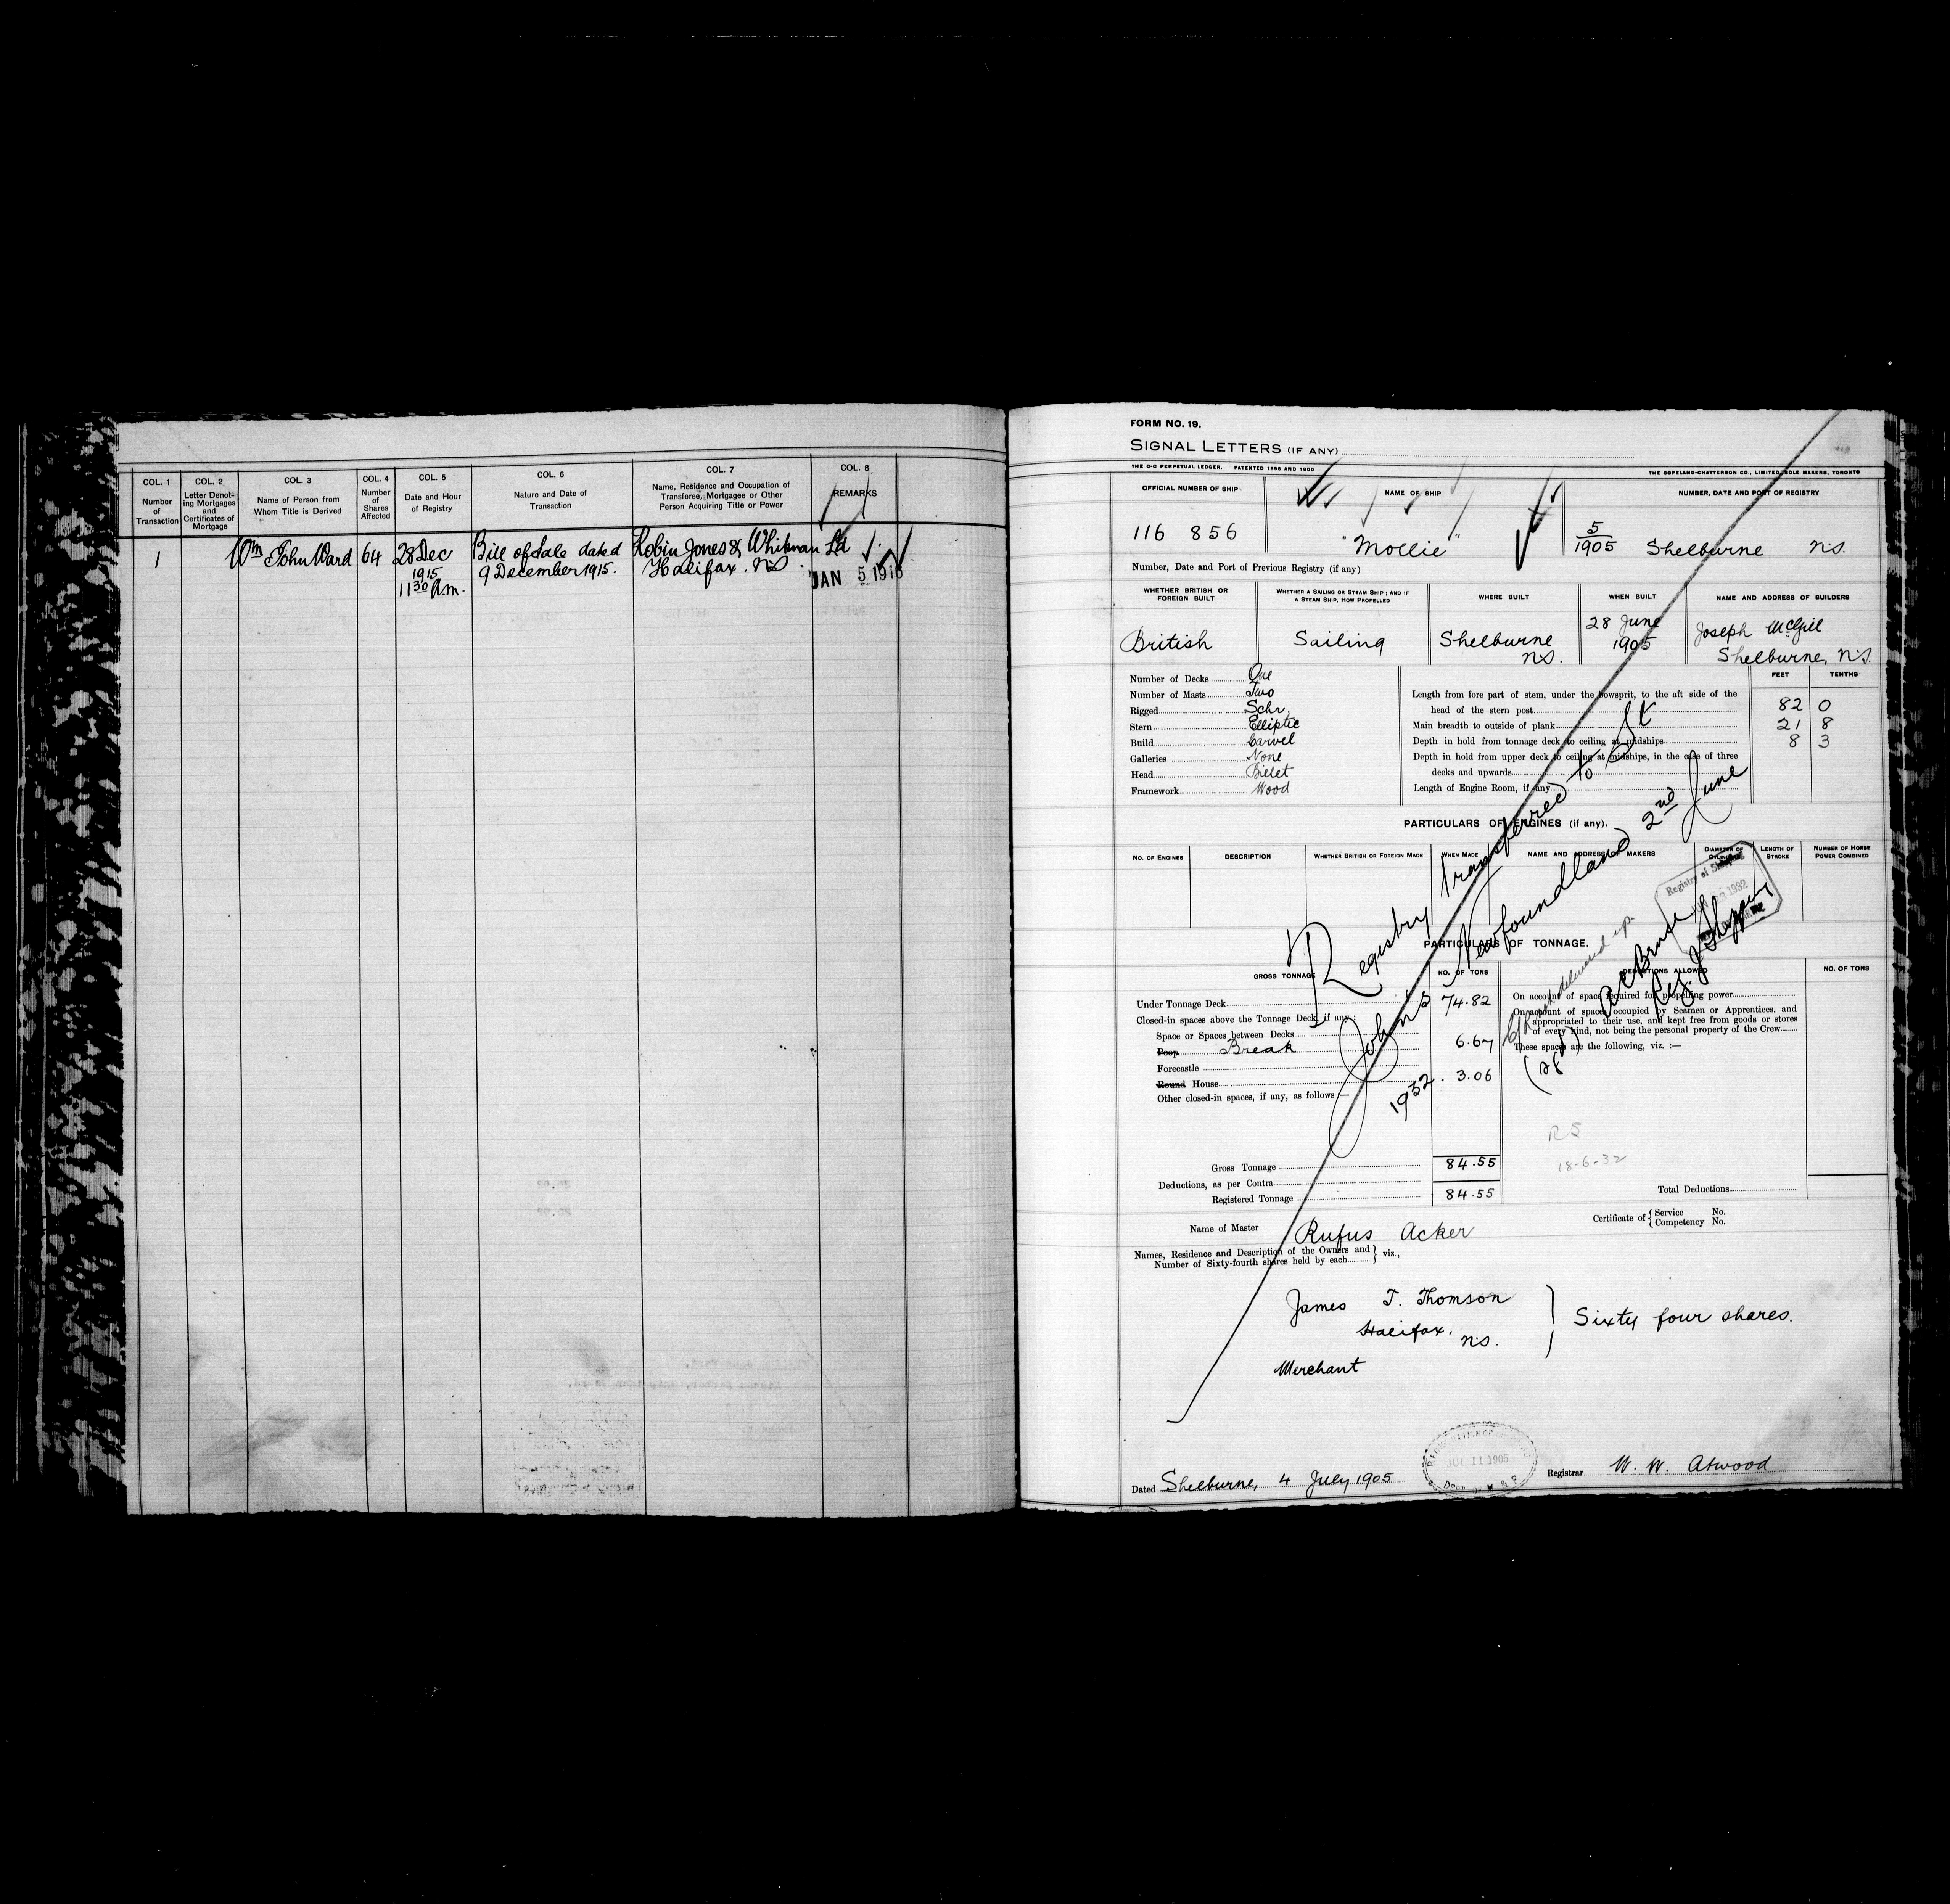 COL. 1
Number
of
Transaction
COL. 2
Letter Denot-
ing Mortgages
and
Certificates of
Mortgage
COL. 3
Name of Person from
Whom Title is Derived
COL. 4
Number
of
Shares
Affected
COL. 5
Date and Hour
of Registry
COL. 6
Nature and Date of
Transaction
COL. 7
Name, Residence and Occupation of
Transferee, Mortgagee or Other
Person Acquiring Title or Power
COL. 8
REMARKS
1
Wm John Ward
64
28 Dec
1915
11 30 a.m.
Bill of Sale dated
9 December 1915.
Robin Jones & Whitman Ld
Halifax. N.S.
JAN 5 1916
FORM NO. 19.
SIGNAL LETTERS (IF ANY)
THE C-C PERPETUAL LEDGER. PATENTED 1896 AND 1900
THE COPELAND-CHATTERSON CO., LIMITED, SOLE MAKERS, TORONTO
OFFICIAL NUMBER OF SHIP
NAME OF SHIP
NUMBER, DATE AND PORT OF REGISTRY
116 856
"Mollie"
5/1905 Shelburne N.S.
Number, Date and Port of Previous Registry (if any)
WHETHER BRITISH OR
FOREIGN BUILT
WHETHER A SAILING OR STEAM SHIP; AND IF
A STEAM SHIP, HOW PROPELLED
WHERE BUILT
WHEN BUILT
NAME AND ADDRESS OF BUILDERS
British
Sailing
Shelburne
N.S.
28 June
1905
Joseph McGill
Shelburne, N.S.
Number of Decks One
Number of Masts Two
Rigged Schr.
Stern Elliptic
Build Carvel
Galleries None
Head Billet
Framework Wood
FEET TENTHS
Length from fore part of stem, under the bowsprit, to the aft side of the
head of the stern post 82 0
Main breadth to outside of plank 21 8
Depth in hold from tonnage deck to ceiling at midships 8 3
Depth in hold from upper deck to ceiling at midships, in the case of three
decks and upwards
Length of Engine Room, if any
PARTICULARS OF ENGINES (if any).
NO. OF ENGINES
DESCRIPTION
WHETHER BRITISH OR FOREIGN MADE
WHEN MADE
NAME AND ADDRESS OF MAKERS
DIAMETER OF
CYLINDERS
LENGTH OF
STROKE
NUMBER OF HORSE
POWER COMBINED
Registry transferred to St
John's Newfoundland 2nd June
1932.
Reg of Shipping
Registry of
1932
PARTICULARS OF TONNAGE.
GROSS TONNAGE
NO. OF TONS
DEDUCTIONS ALLOWED
NO. OF TONS
Under Tonnage Deck 74.82
Closed-in spaces above the Tonnage Deck, if any:
Space or Spaces between Decks
Poop Break 6.67
Forecastle
Round House 3.06
Other closed-in spaces, if any, as follows:—
Gross Tonnage 84.55
Deductions, as per Contra
Registered Tonnage 84.55
On account of space required for propelling power
On account of spaces occupied by Seamen or Apprentices, and
appropriated to their use, and kept free from goods or stores
of every kind, not being the personal property of the Crew
These spaces are the following, viz.:—
RS
18-6-32
Total Deductions
Name of Master Rufus Acker
Certificate of { Service No.
Competency No.
Names, Residence and Description of the Owners and
Number of Sixty-fourth shares held by each } viz.,
James T. Thomson
Halifax, N.S.
Merchant
Sixty four shares.
JUL 11 1905
Dated Shelburne, 4 July 1905
Registrar W. W. Atwood